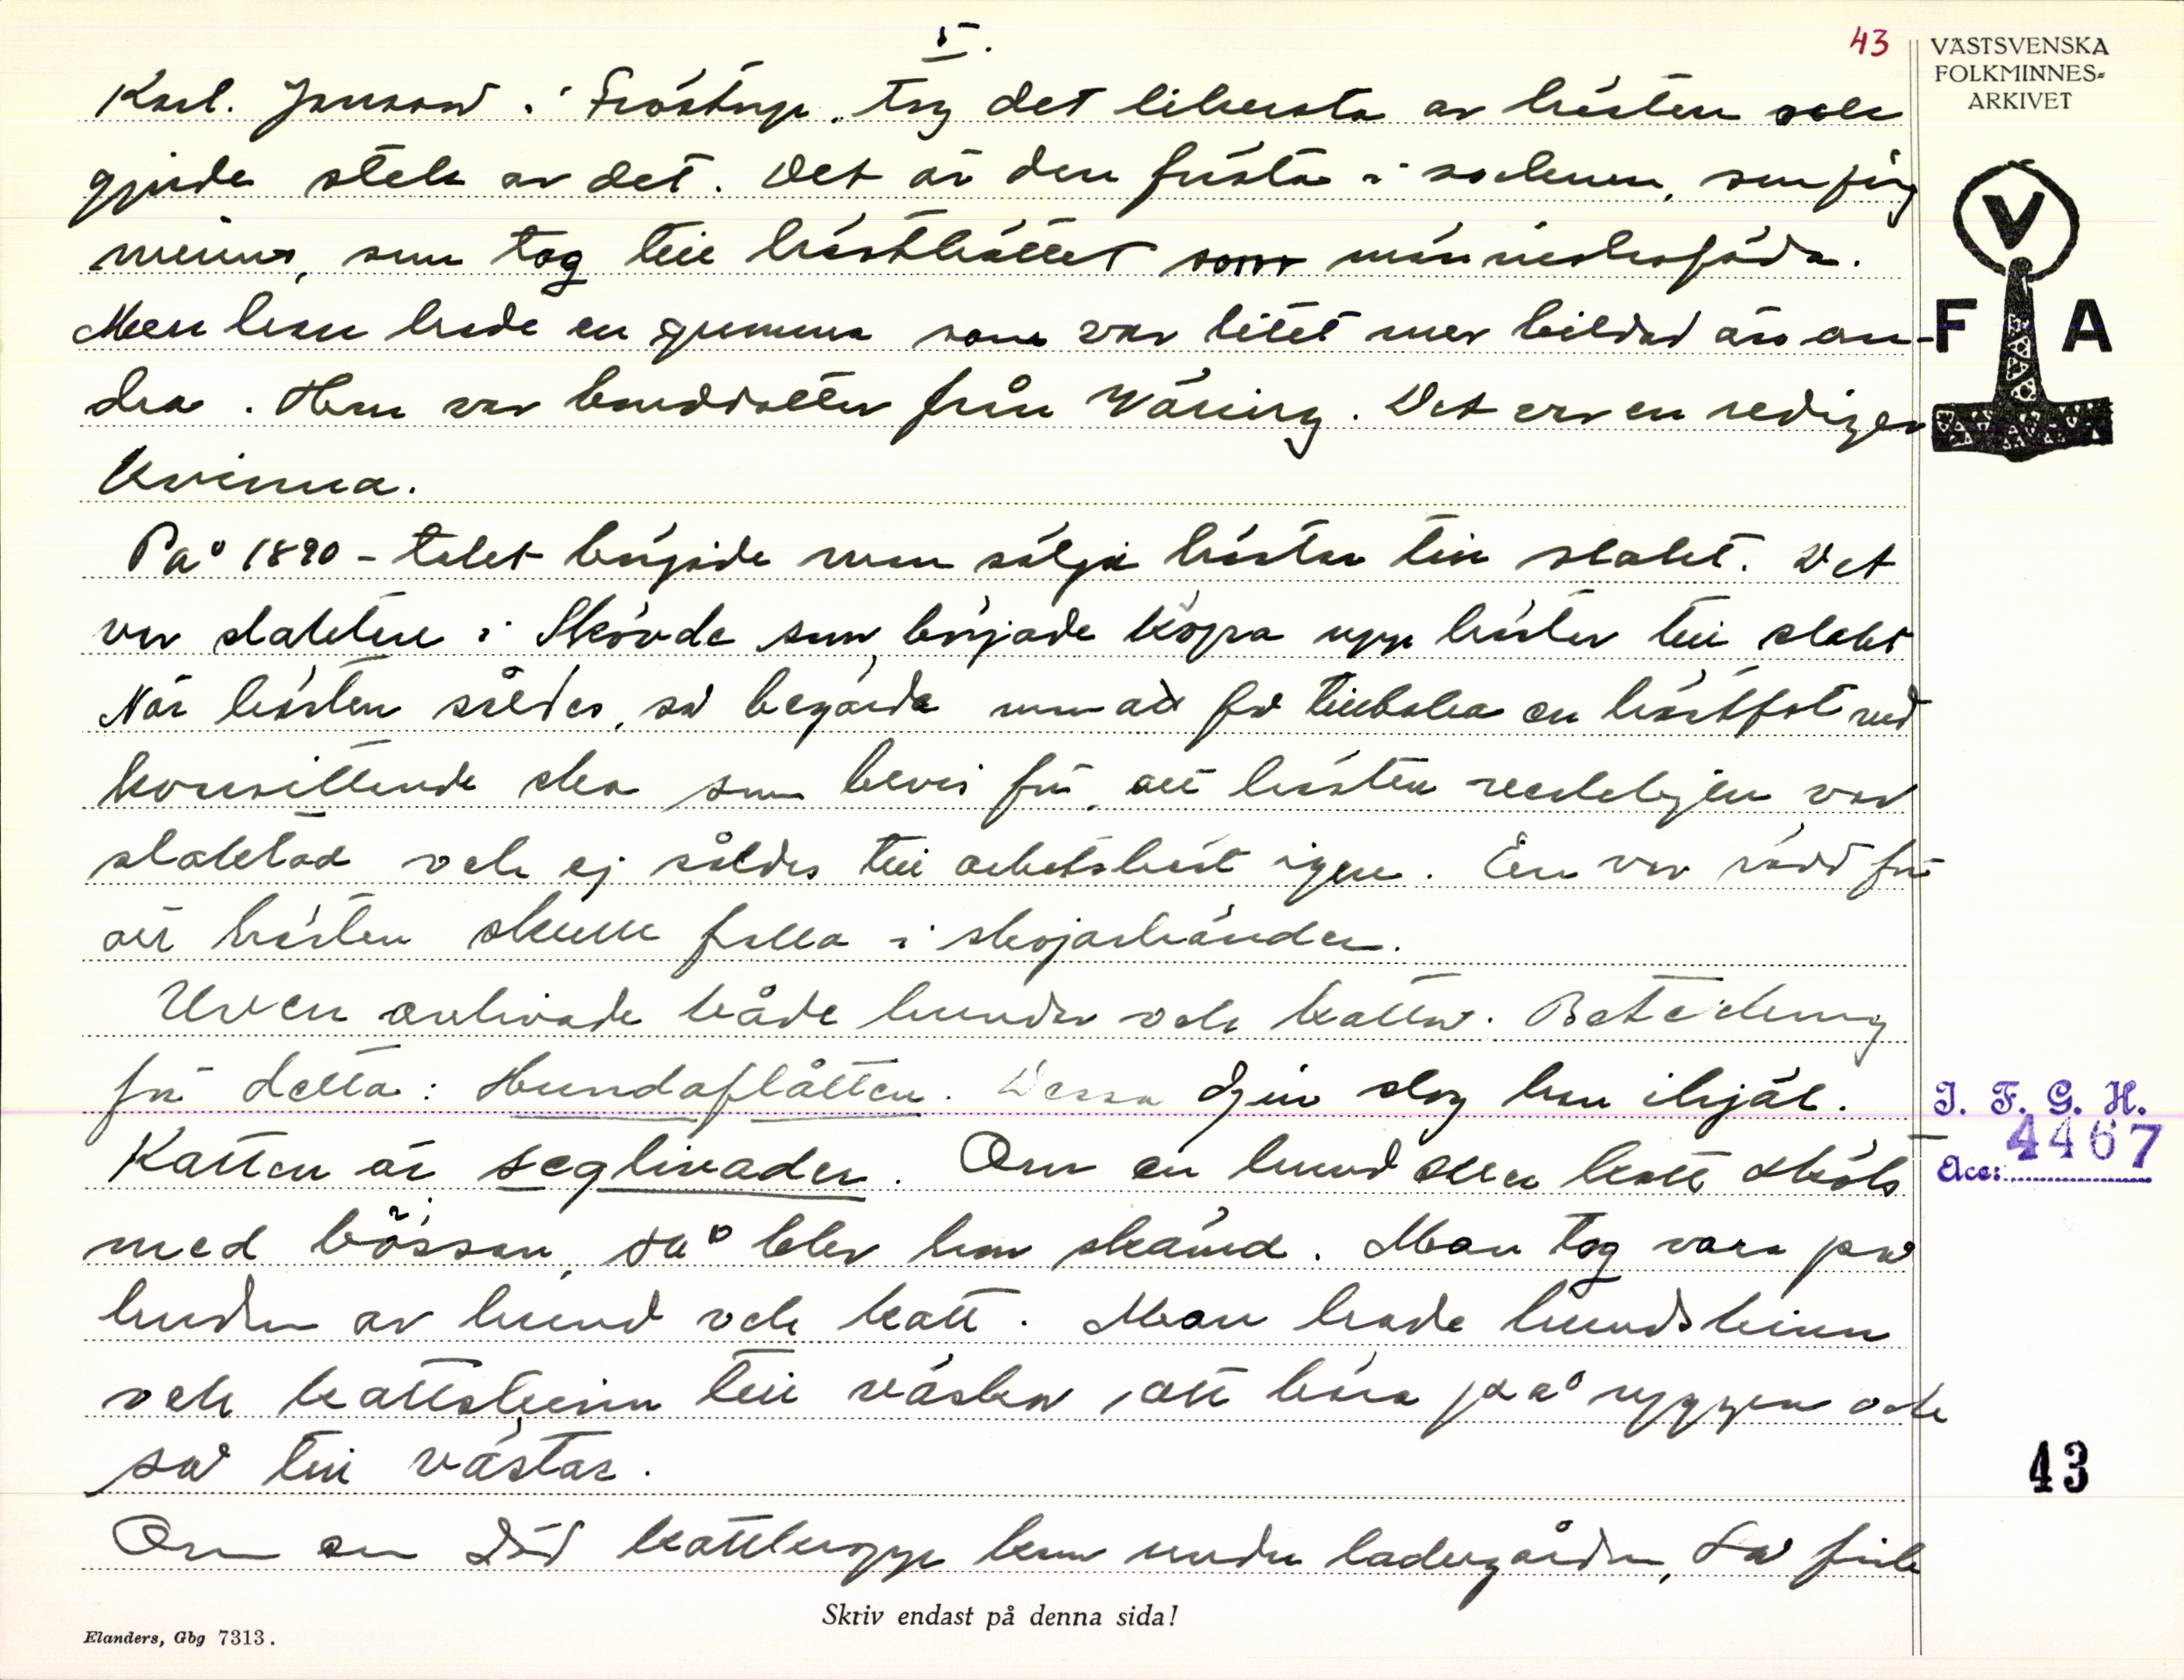 5.
43
VÄSTSVENSKA
FOLKMINNES=
ARKIVET
Karl. Jonsson i Fröstorp. tog det liksta av hästen och
gjorde stek av det. Det är den första i socknen, som jag
minns, som tog till hästköttet som människoföda.
Men han hade en gumma som var litet mer bildad än an-
dra. Hon var bonddotter från Väring. Det var en redigen
kvinna.
På 1890-talet började man sälja hästar till slakt. Det
var slaktare i Skövde som började köpa upp hästar till slakt
När hästen såldes, så begärde man att få tillbaka en hästfot med
kvarsittande sko som bevis för, att hästen verkligen var
slaktad och ej såldes till arbetshäst igen. En var rädd för
att hästen skulle falla i skojarhänder.
Urven avlivade både hundar och katter. Beteckning
för detta: Hundaflåtten. Dessa djur slog han ihjäl.
Katten är seglivaden. Om en hund eller katt sköts
med bössan, så blev hon skämd. Man tog vara på
huden av hund och katt. Man hade hundskinn
och kattskinn till väskor, att bära på ryggen och
så till västar.
Om en död kattkropp kom under ladugården, så fick
V
F A
I. F. G. H.
4467
Acc:
43
Skriv endast på denna sida!
Elanders, Gbg 7313.